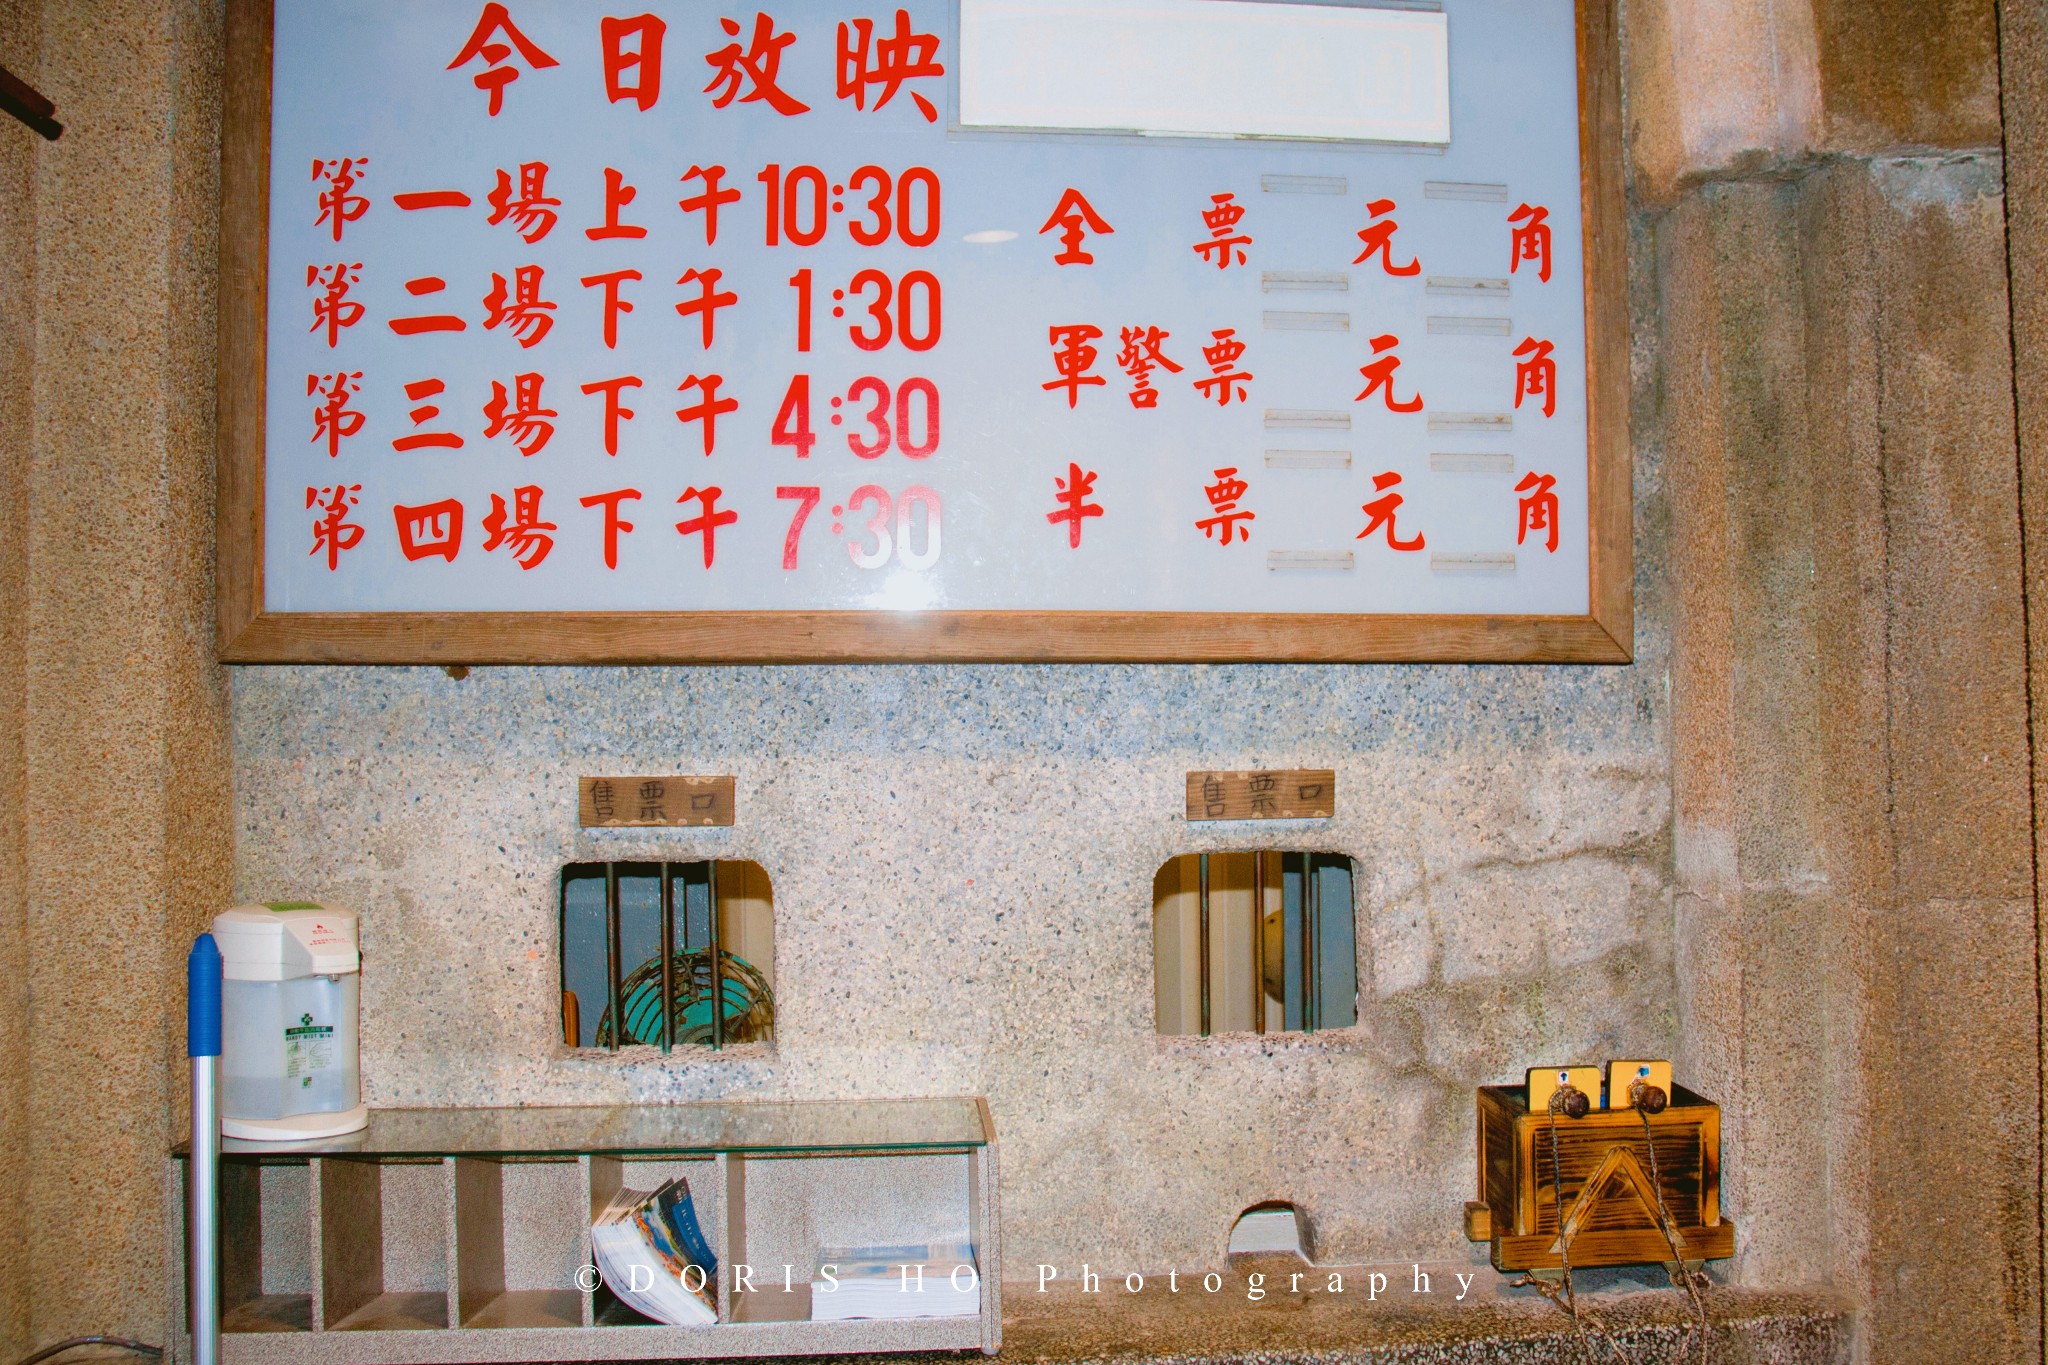 今日放映
第一場上午10:30
第二場下午1:30
第三場下午4:30
第四場下午7:30
全票 元 角
軍警票 元 角
半票 元 角
售票口
售票口
©DORIS HO Photography